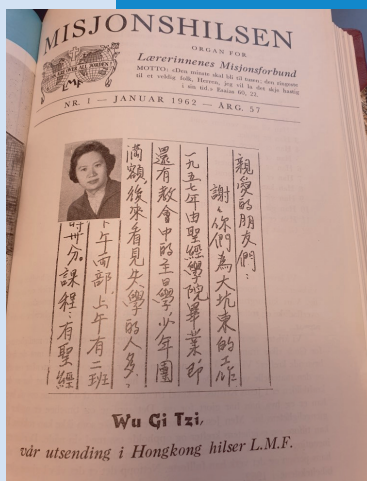 MISJONSHILSEN
ORGAN FOR
Lærerinnenes Misjonsforbund
MOTTO: «Den minste skal bli til tusen; den ringeste
til et veldig folk, Herren, jeg vil la det skje hastig
i sin tid.» Esaias 60, 22.
LMF
NR. 1 — JANUAR 1962 — ÅRG. 57
親愛的朋友們：
謝々你們為大坑東的工作
一九五七年由聖經學院畢業即
還有教會中的主日學少年團
滿額，後來看見失學的人多，
下午両部．上午有二班
卅分。課程：有聖經
Wu Gi Tzi,
vår utsending i Hongkong hilser L.M.F.